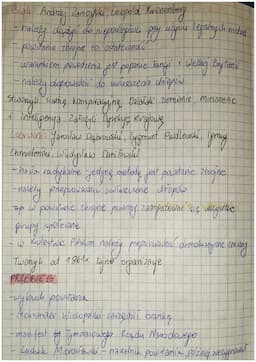 Biali: Andrzej Zamoyski, Leopold Kronenberg
- należy dążyć do niepodległości przy użyciu legalnych metod
powstanie zbrojne to ostateczność
- warunkiem powodzenia jest poparcie Francji i Wielkiej Brytanii
- należy doprowadzić do uwłaszczenia chłopów
Stworzyli: ziemianie, mieszczanie
i inteligencja założyli Dyrekcję Krajową
Czerwoni: Jarosław Dąbrowski, Zygmunt Padlewski, Ignacy
Chmieleński, Władysław Daniłowski
- hasła radykalne jedyną metodą jest powstanie zbrojne
- należy przeprowadzić uwłaszczenie chłopów
- w powstanie zbrojne powinny zaangażować się wszystkie
grupy społeczne
- w Królestwie Polskim należy przeprowadzić demokratyczne
Tworzyli od 1861r. tajne organizacje
PRZEBIEG
- wybuch powstania
- Aleksander Wielopolski zarządził brankę
- manifest Tymczasowego Rządu Narodowego
- Ludwik Mierosławski - naczelnik powstania